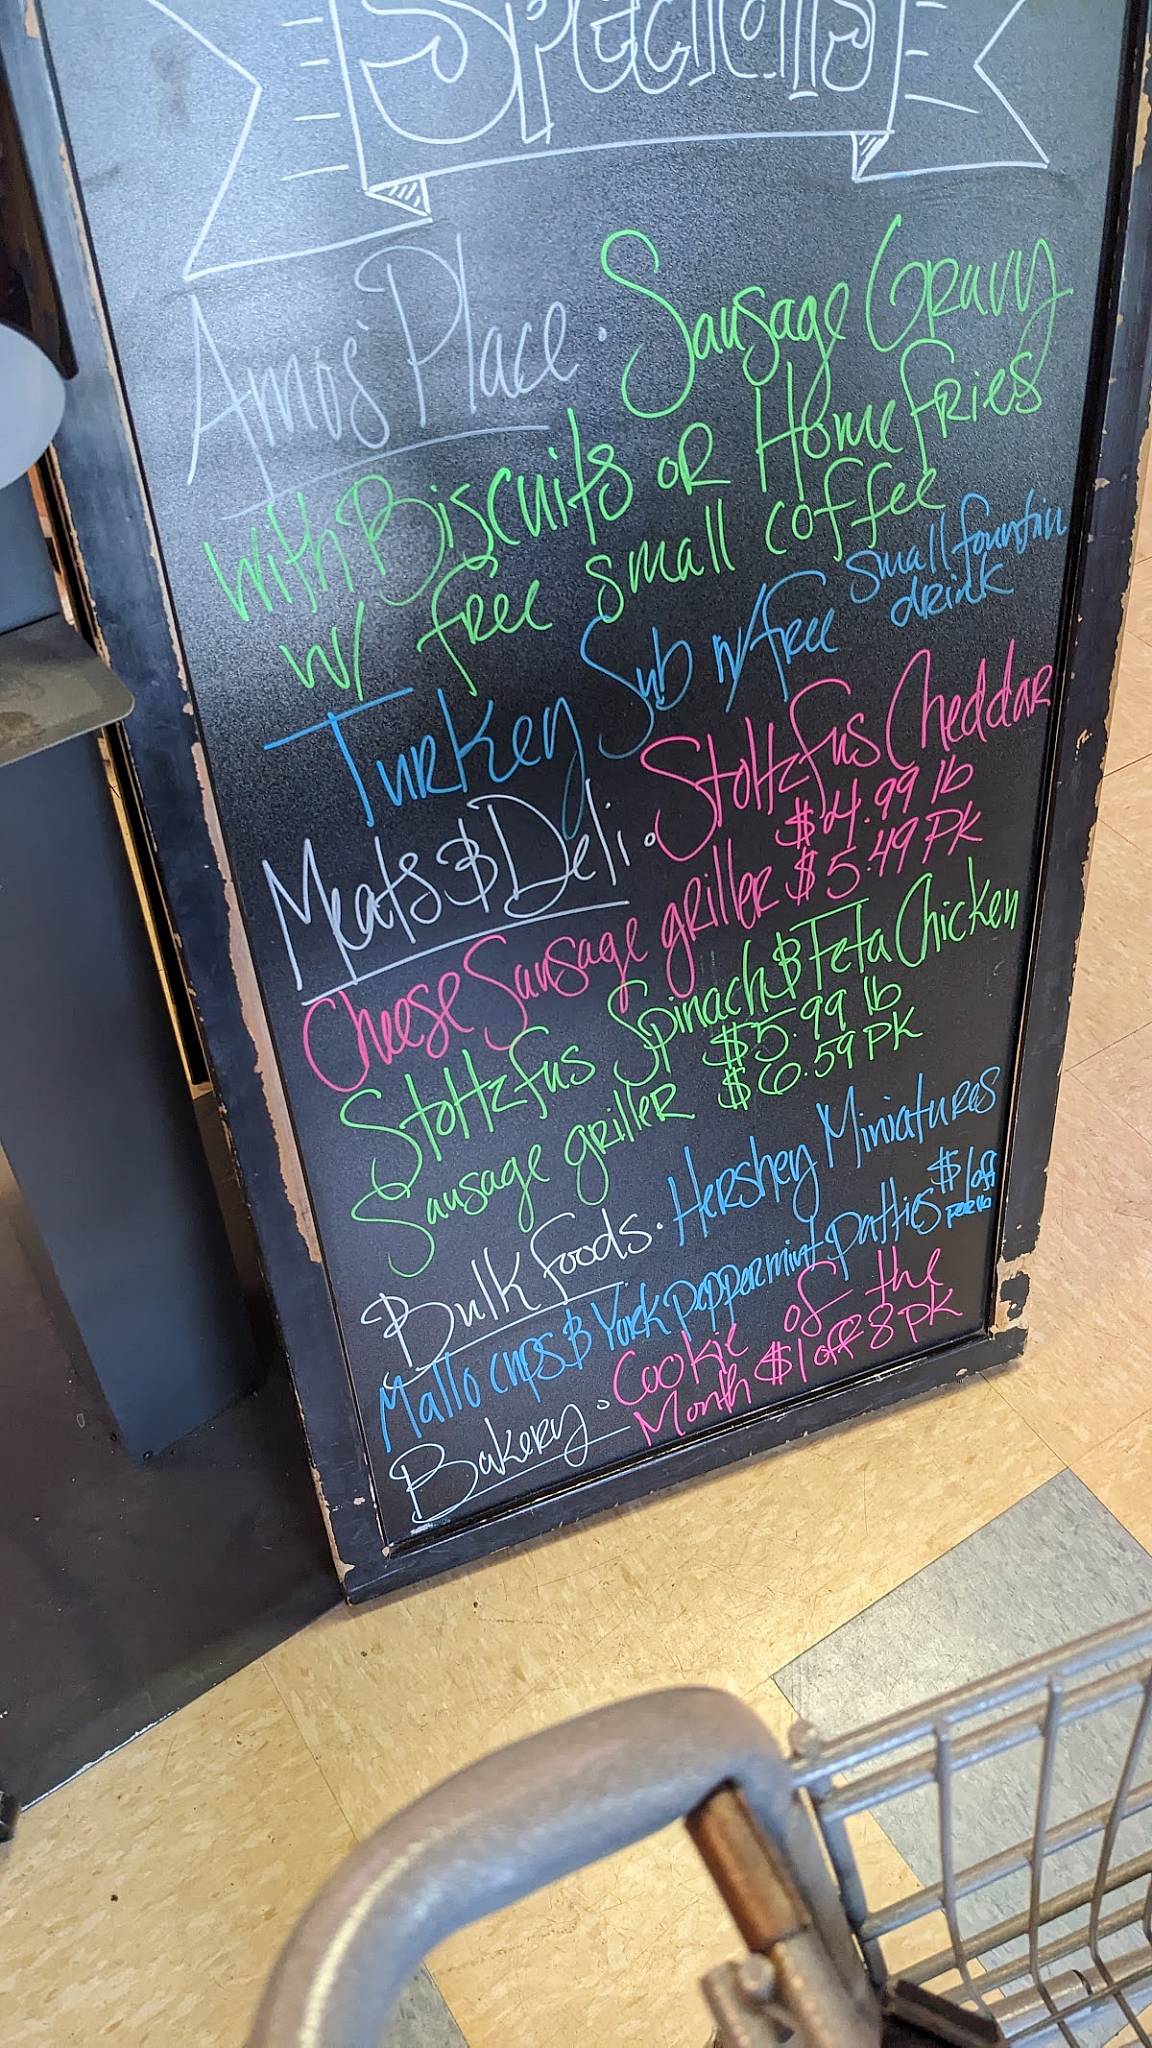 Specials
Amos' Place · Sausage Gravy
with Biscuits or Home fries
w/ free small coffee
Turkey Sub w/ free small fountin
drink
Meats & Deli · Stoltzfus Cheddar
Cheese Sausage griller $4.99 lb
$5.49 PK
Stoltzfus Spinach & Feta Chicken
Sausage griller $5.99 lb
$6.59 PK
Bulk foods · Hershey Miniatures
Mallo cups & York peppermint patties $1 off
per lb
Bakery · Cookie of the
Month $1 off 8 PK